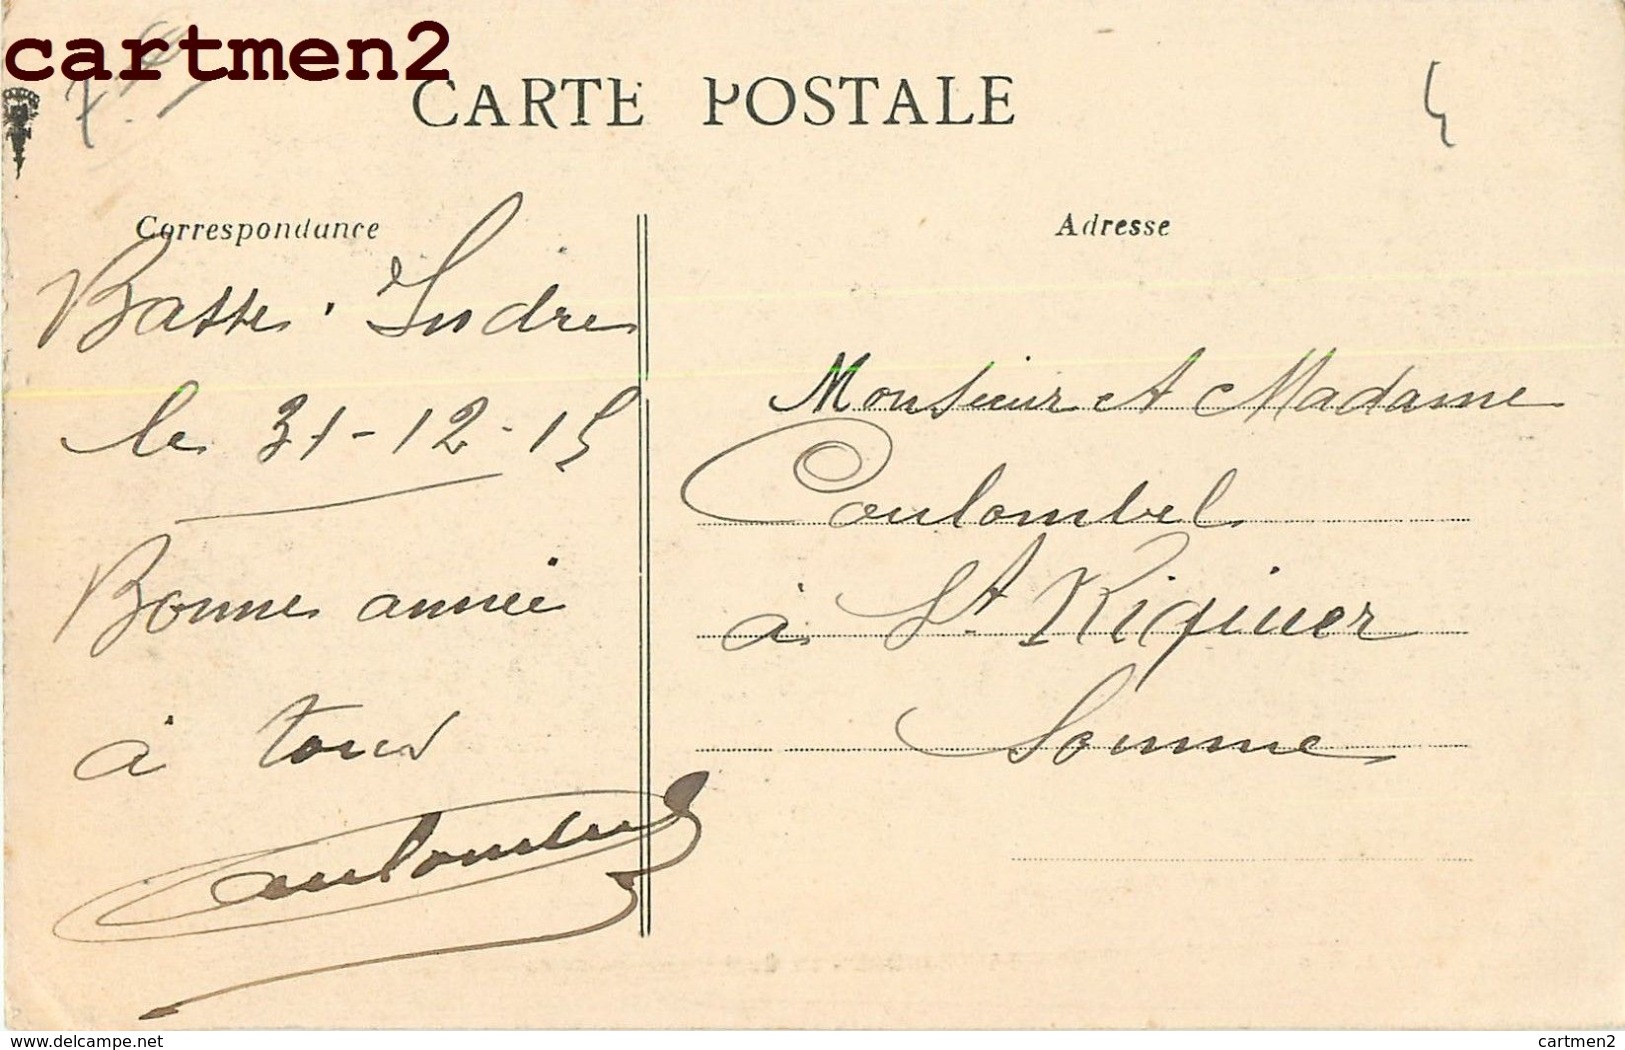 cartmen2
CARTE POSTALE
Correspondance
Basse-Indre
le 31-12-15
Bonne année
à tous
Coulombel
Adresse
Monsieur et Madame
Coulombel
à St Riquier
Somme
delcampe.net
cartmen2